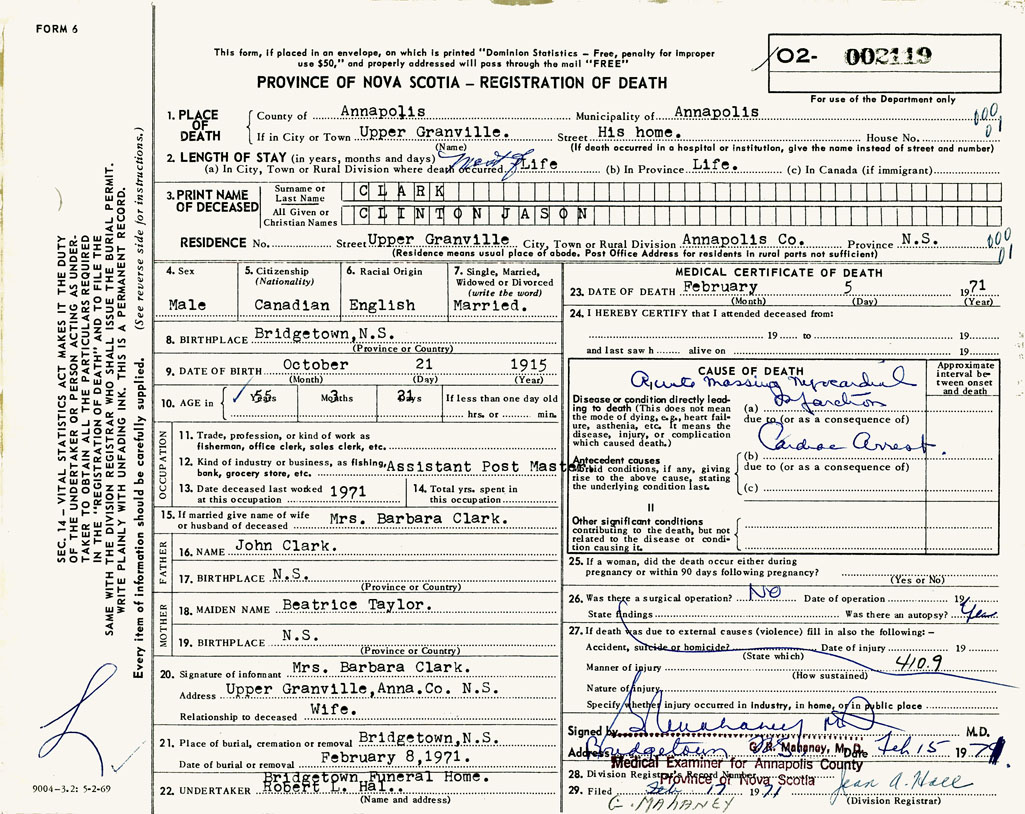 FORM 6
This form, if placed in an envelope, on which is printed "Dominion Statistics – Free, penalty for improper
use $50," and properly addressed will pass through the mail "FREE"
PROVINCE OF NOVA SCOTIA – REGISTRATION OF DEATH
O2- 002119
For use of the Department only
SEC. 14 – VITAL STATISTICS ACT MAKES IT THE DUTY
OF THE UNDERTAKER OR PERSON ACTING AS UNDER-
TAKER TO OBTAIN ALL THE PARTICULARS REQUIRED
IN THE "REGISTRATION OF DEATH" AND TO FILE THE
SAME WITH THE DIVISION REGISTRAR WHO SHALL ISSUE THE BURIAL PERMIT.
WRITE PLAINLY WITH UNFADING INK. THIS IS A PERMANENT RECORD.
Every item of information should be carefully supplied. (See reverse side for instructions.)
1. PLACE OF DEATH
County of Annapolis Municipality of Annapolis 000
If in City or Town Upper Granville. Street His home. House No. 01
(Name) (If death occurred in a hospital or institution, give the name instead of street and number)
2. LENGTH OF STAY (in years, months and days)
(a) In City, Town or Rural Division where death occurred Most of Life (b) In Province Life. (c) In Canada (if immigrant)
3. PRINT NAME OF DECEASED
Surname or Last Name CLARK
All Given or Christian Names CLINTON JASON
RESIDENCE No. Street Upper Granville City, Town or Rural Division Annapolis Co. Province N.S. 000
(Residence means usual place of abode. Post Office Address for residents in rural parts not sufficient) 01
4. Sex
Male
5. Citizenship (Nationality)
Canadian
6. Racial Origin
English
7. Single, Married, Widowed or Divorced (write the word)
Married.
8. BIRTHPLACE Bridgetown,N.S.
(Province or Country)
9. DATE OF BIRTH October 21 1915
(Month) (Day) (Year)
10. AGE in 55 Years 3 Months Days If less than one day old
hrs. or min.
OCCUPATION
11. Trade, profession, or kind of work as
fishermen, office clerk, sales clerk, etc.
12. Kind of industry or business, as fishing, Assistant Post Master
bank, grocery store, etc.
13. Date deceased last worked 1971
at this occupation
14. Total yrs. spent in
this occupation
15. If married give name of wife
or husband of deceased Mrs. Barbara Clark.
FATHER
16. NAME John Clark.
17. BIRTHPLACE N.S.
(Province or Country)
MOTHER
18. MAIDEN NAME Beatrice Taylor.
19. BIRTHPLACE N.S.
(Province or Country)
20. Signature of informant Mrs. Barbara Clark.
Address Upper Granville,Anna.Co. N.S.
Relationship to deceased Wife.
21. Place of burial, cremation or removal Bridgetown,N.S.
Date of burial or removal February 8,1971.
Bridgetown Funeral Home.
22. UNDERTAKER Robert L. Hal..
(Name and address)
9004-3.2: 5-2-69
MEDICAL CERTIFICATE OF DEATH
23. DATE OF DEATH February 5 1971
(Month) (Day) (Year)
24. I HEREBY CERTIFY that I attended deceased from:
19 to 19
and last saw h alive on 19
CAUSE OF DEATH
Approximate interval between onset and death
Acute Massive Myocardial
Disease or condition directly lead-
ing to death (This does not
mean the mode of dying, e.g., heart fail-
ure, asthenia, etc. It means the
disease, injury, or complication
which caused death.)
(a) Infarction
due to (or as a consequence of)
Cardiac Arrest.
Antecedent causes
Morbid conditions, if any, giving
rise to the above cause, stating
the underlying condition last.
(b)
due to (or as a consequence of)
(c)
II
Other significant conditions
contributing to the death, but not
related to the disease or condi-
tion causing it.
25. If a woman, did the death occur either during
pregnancy or within 90 days following pregnancy?
(Yes or No)
26. Was there a surgical operation? NO Date of operation 19
State findings Was there an autopsy?
27. If death was due to external causes (violence) fill in also the following: –
Accident, suicide or homicide? Date of injury 19
(State which)
Manner of injury 410.9
(How sustained)
Nature of injury
Specify whether injury occurred in industry, in home, or in public place
Signed by Mahaney MD M.D.
Address Bridgetown NS G. R. Mahaney, M.D. Date Feb 15 1971
Medical Examiner for Annapolis County
Province of Nova Scotia
28. Division Registrar's Record Number
29. Filed Feb 17 1971 Jean A. Hall
G. MAHANEY (Division Registrar)